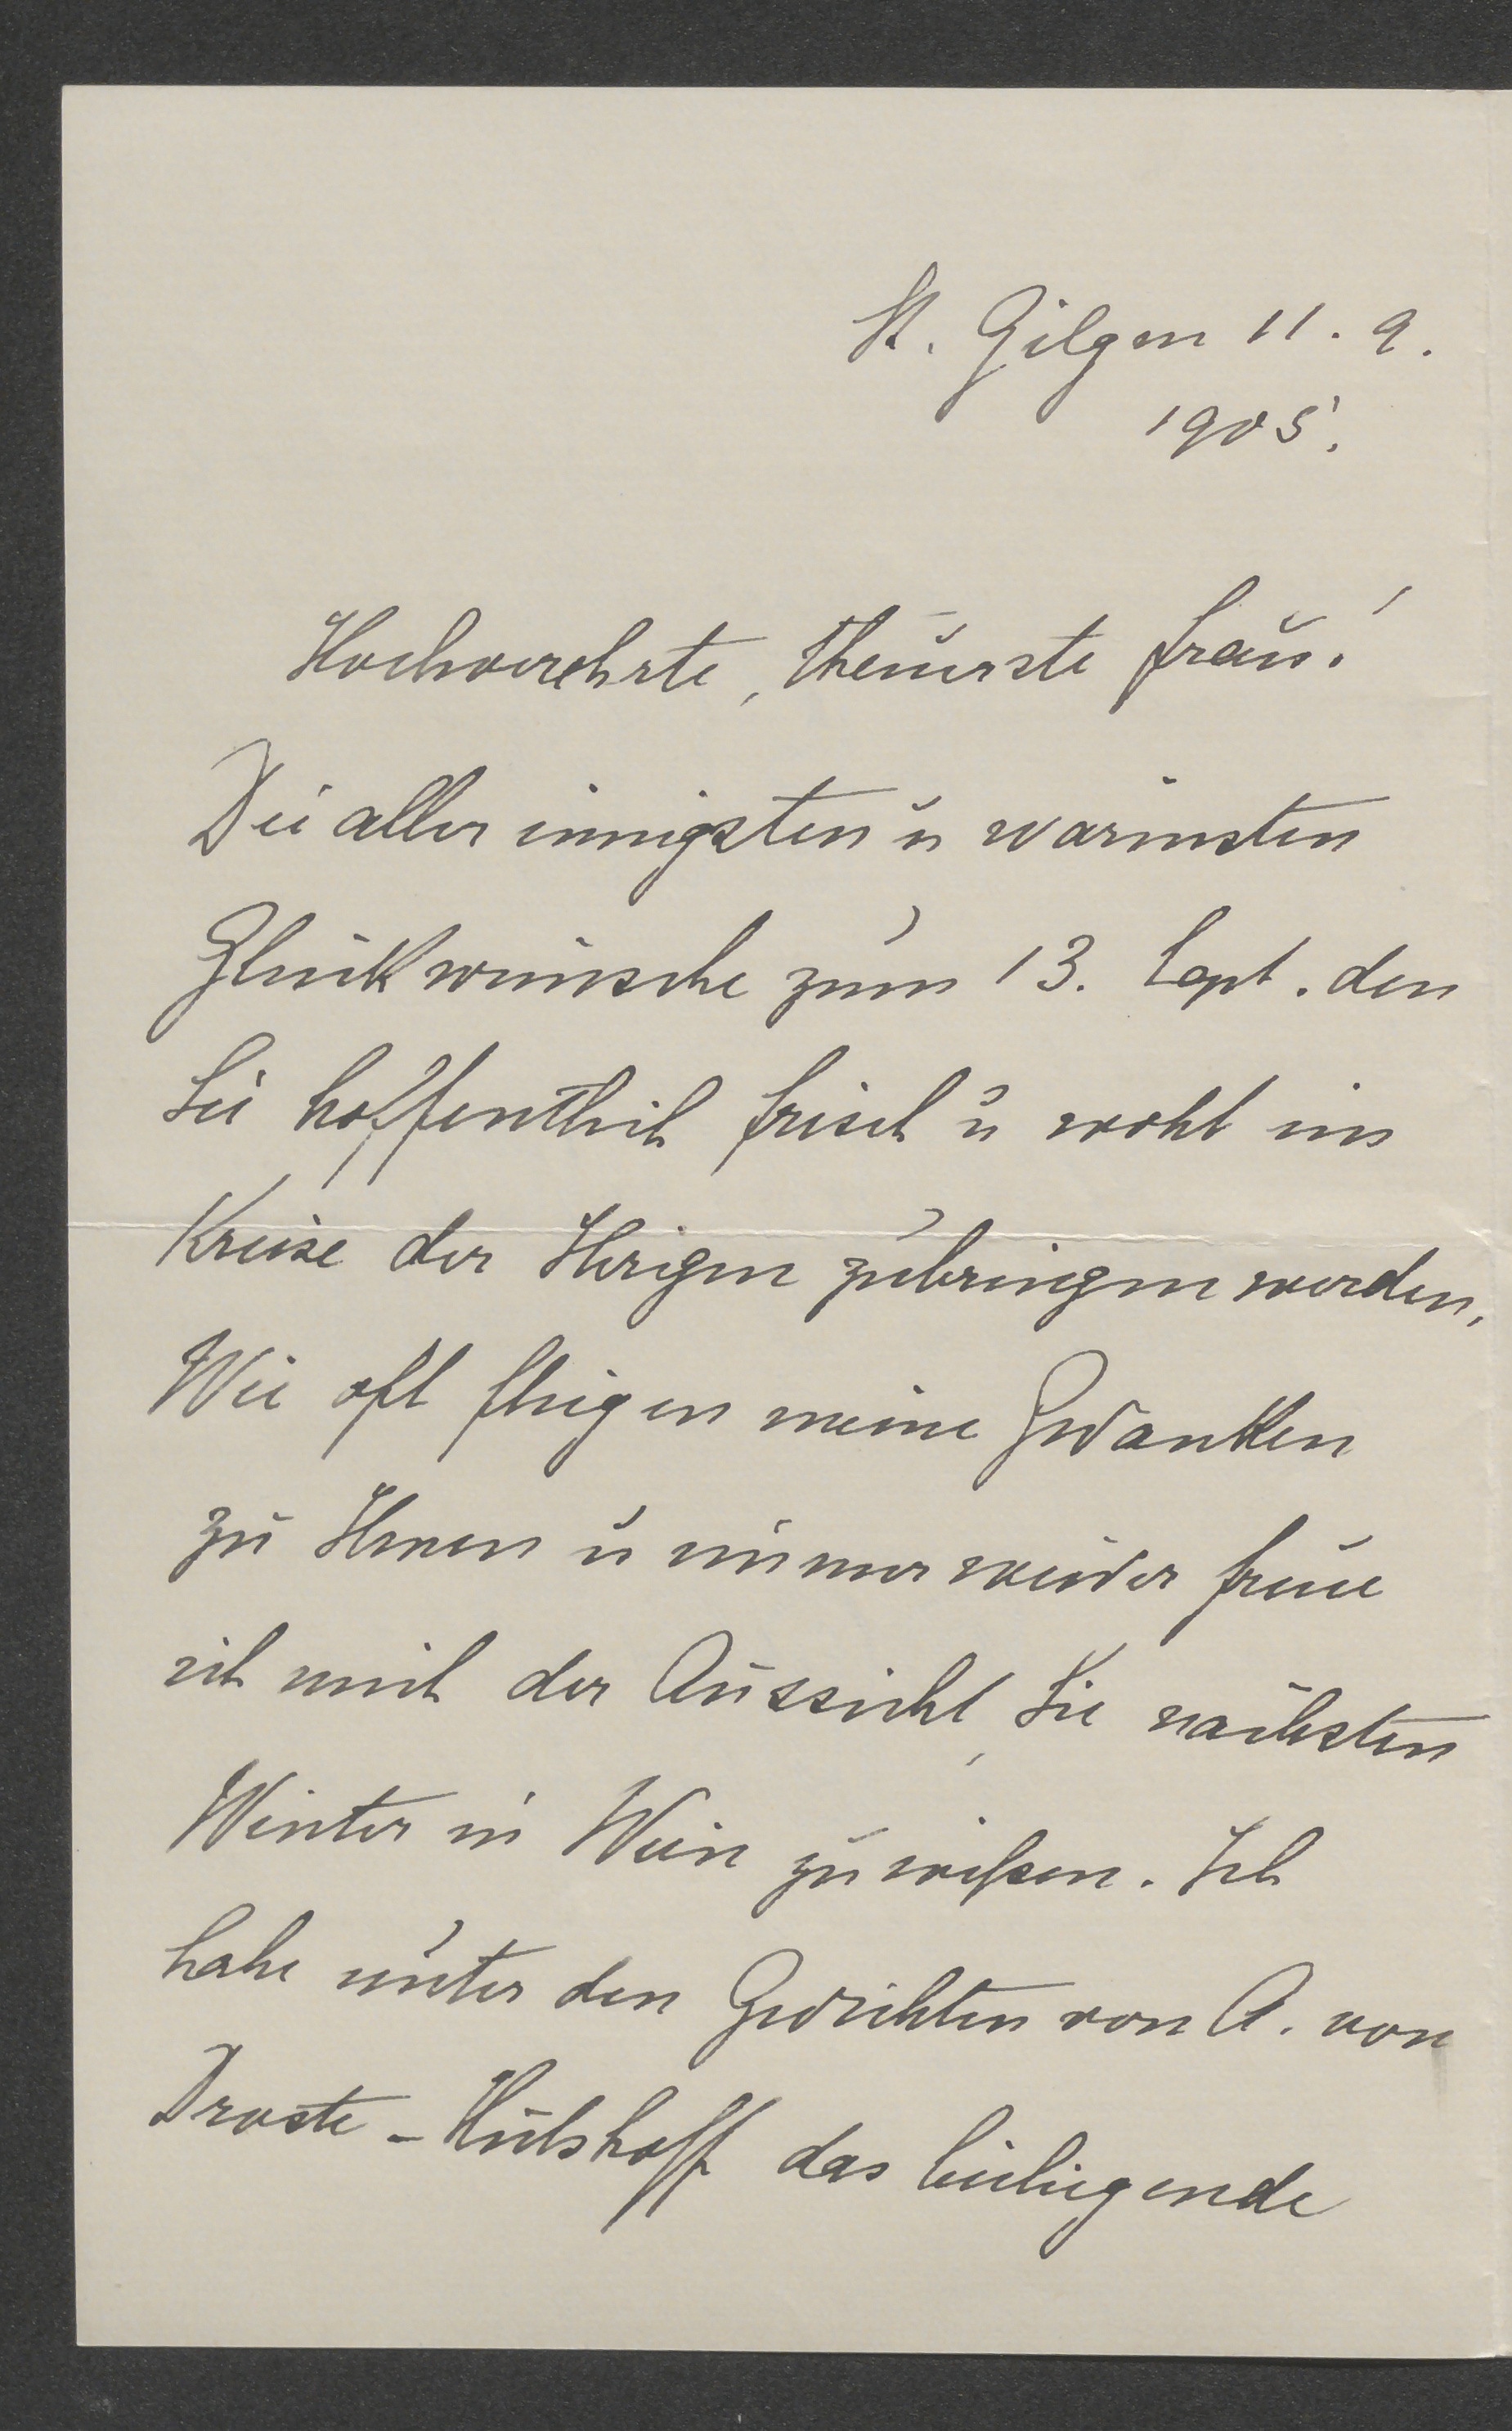 St. Gilgen 11. 9.
1905.
Hochverehrte, theuerste Frau!
Die aller innigsten u warmsten
Glückwünsche zum 13. Sept. den
Sie hoffentlich frisch u wohl im
Kreise der Ihrigen zubringen werden.
Wie oft fliegen meine Gedanken
zu Ihnen u immer wieder freue
ich mich der Aussicht, Sie nächsten
Winter in Wien zu wißen. Ich
habe unter den Gedichten von A. von
Droste-Hülshoff das beiliegende